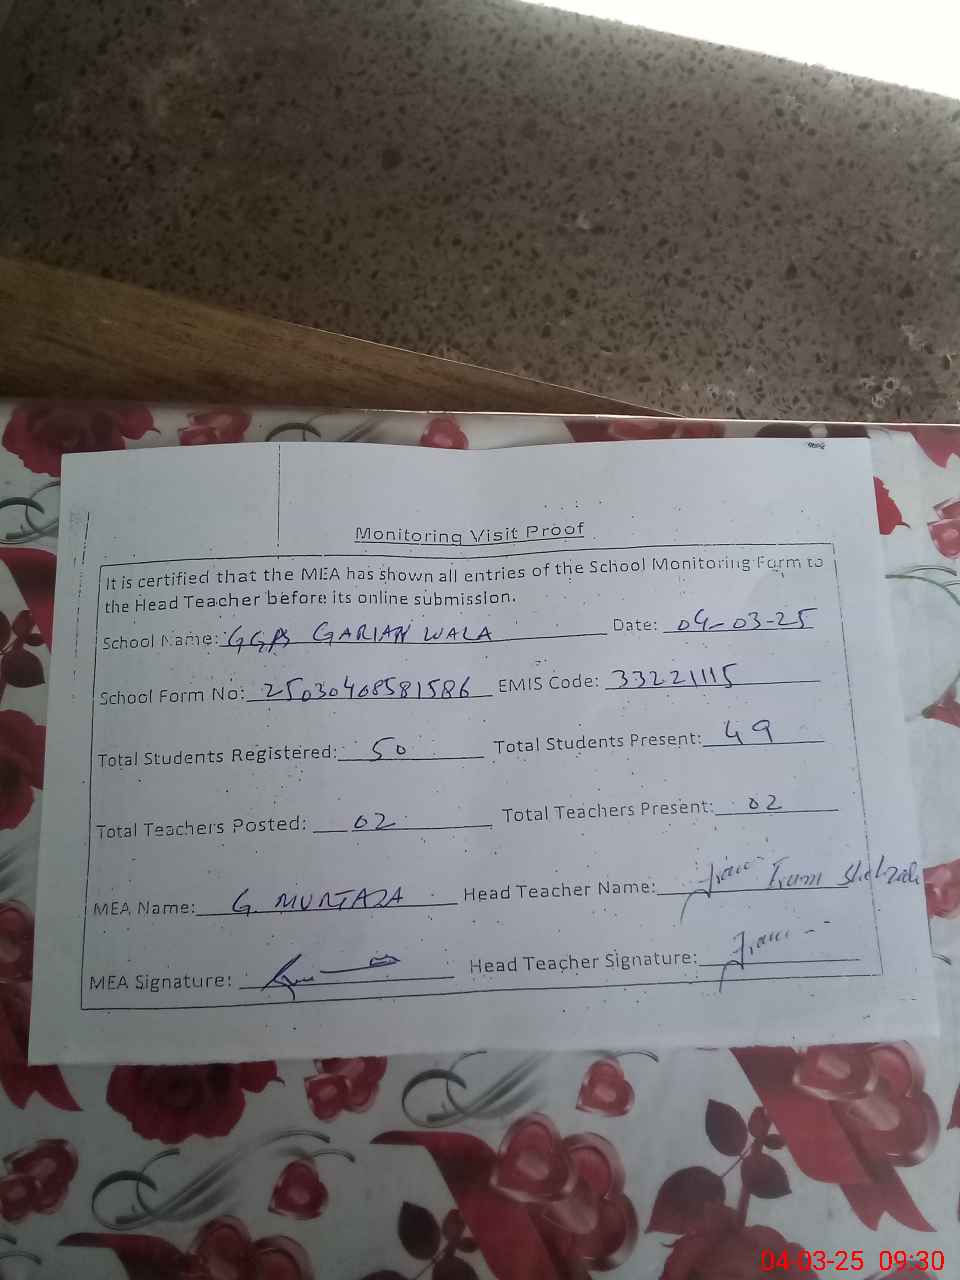 Monitoring Visit Proof
It is certified that the MEA has shown all entries of the School Monitoring Form to
the Head Teacher before its online submission.
School Name: GGPS GARIAN WALA Date: 04-03-25
School Form No: 25030408581586 EMIS Code: 33221115
Total Students Registered: 50 Total Students Present: 49
Total Teachers Posted: 02 Total Teachers Present: 02
MEA Name: G. MURTAZA Head Teacher Name: Irum Shahzadi
MEA Signature: Head Teacher Signature:
04-03-25 09:30